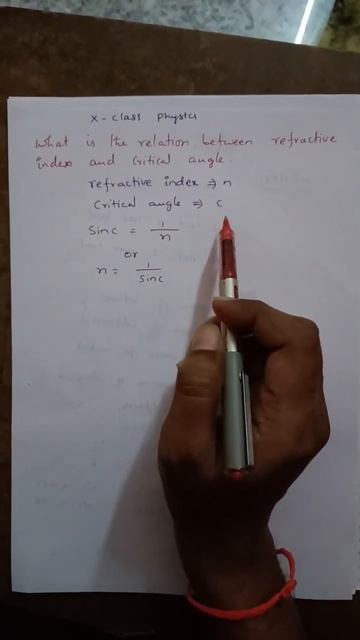 X - class physics
What is the relation between refractive
index and critical angle.
refractive index ⇒ n
Critical angle ⇒ c
Sinc = 1/n
or
n = 1/Sinc